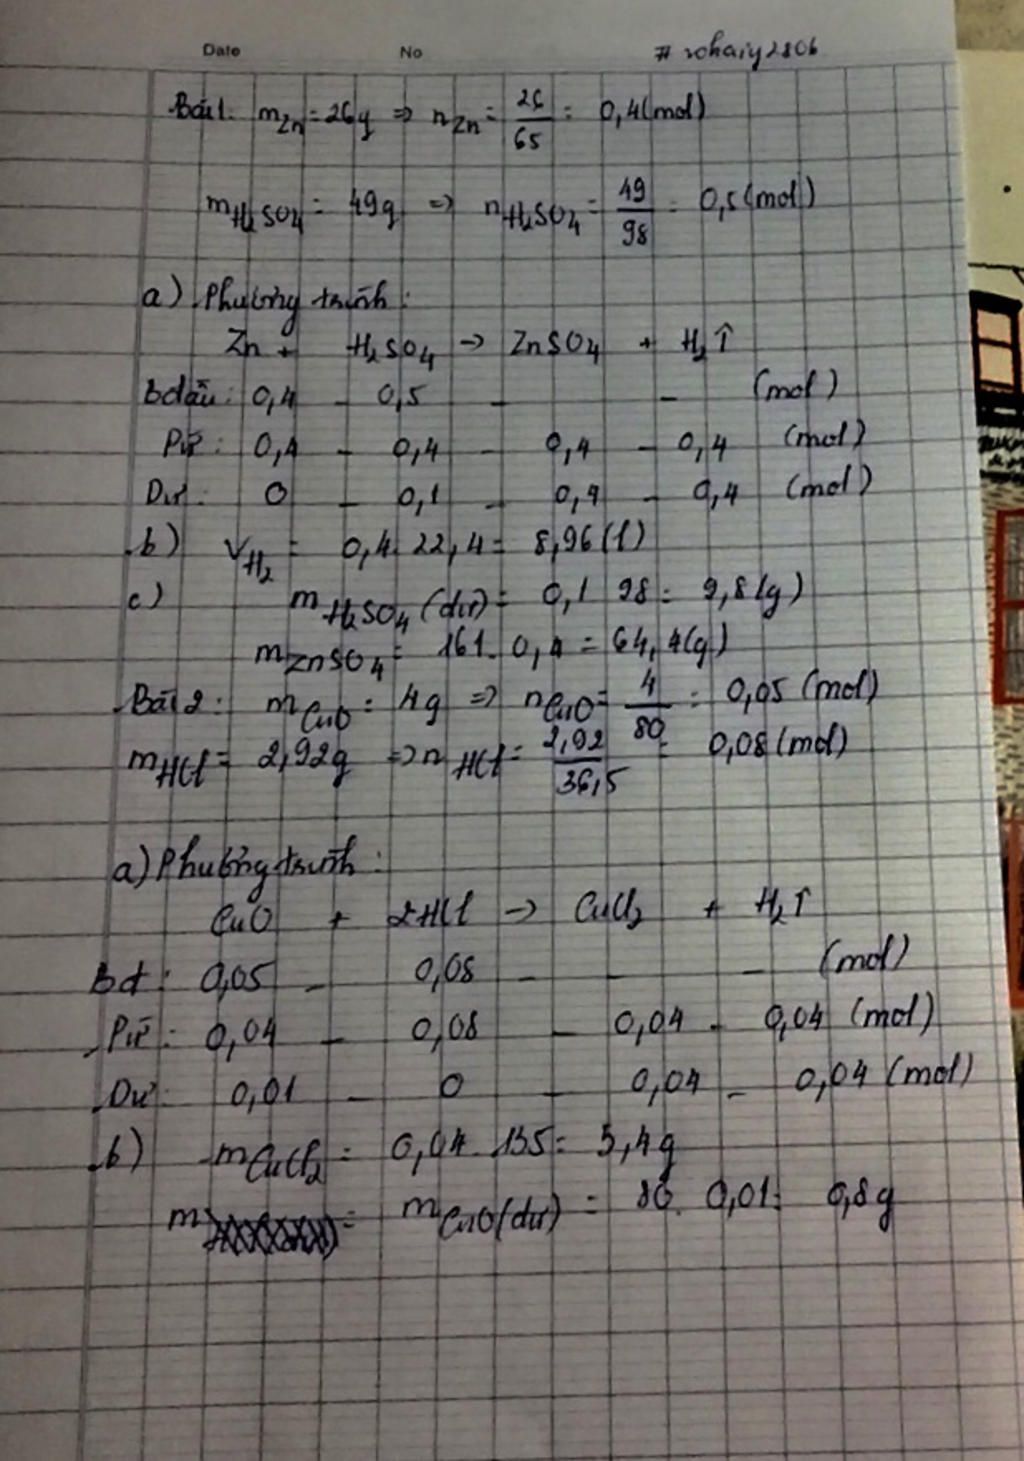 Date No #rohaiy2806
Bài 1: mZn = 26g => nZn = 26/65 = 0,4(mol)
mH2SO4 = 49g => nH2SO4 = 49/98 = 0,5(mol)
a) Phương trình:
Zn + H2SO4 -> ZnSO4 + H2↑
bđầu: 0,4 - 0,5 - - (mol)
Pư: 0,4 - 0,4 - 0,4 - 0,4 (mol)
Dư: 0 - 0,1 - 0,4 - 0,4 (mol)
b) VH2 = 0,4. 22,4 = 8,96(l)
c) mH2SO4(dư) = 0,1 98 = 9,8(g)
mZnSO4 = 161. 0,4 = 64,4(g)
Bài 2: mCuO = 4g => nCuO = 4/80 = 0,05 (mol)
mHCl = 2,92g => nHCl = 2,92/36,5 = 0,08(mol)
a) Phương trình:
CuO + 2HCl -> CuCl2 + H2↑
Bđ: 0,05 - 0,08 - - - (mol)
Pư: 0,04 - 0,08 - 0,04 - 0,04 (mol)
Dư: 0,01 - 0 - 0,04 - 0,04 (mol)
b) mCuCl2 = 0,04. 135 = 5,4g
m = mCuO(dư) = 80. 0,01 = 0,8g